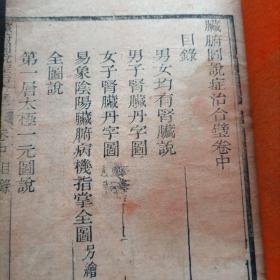 臟腑圖說症治合璧卷中
目錄
男女均有腎臟說
男子腎臟丹字圖
女子腎臟丹字圖
易象陰陽臟腑病機指掌全圖另繪
全圖說
第一層太極一元圖說
卷中目錄